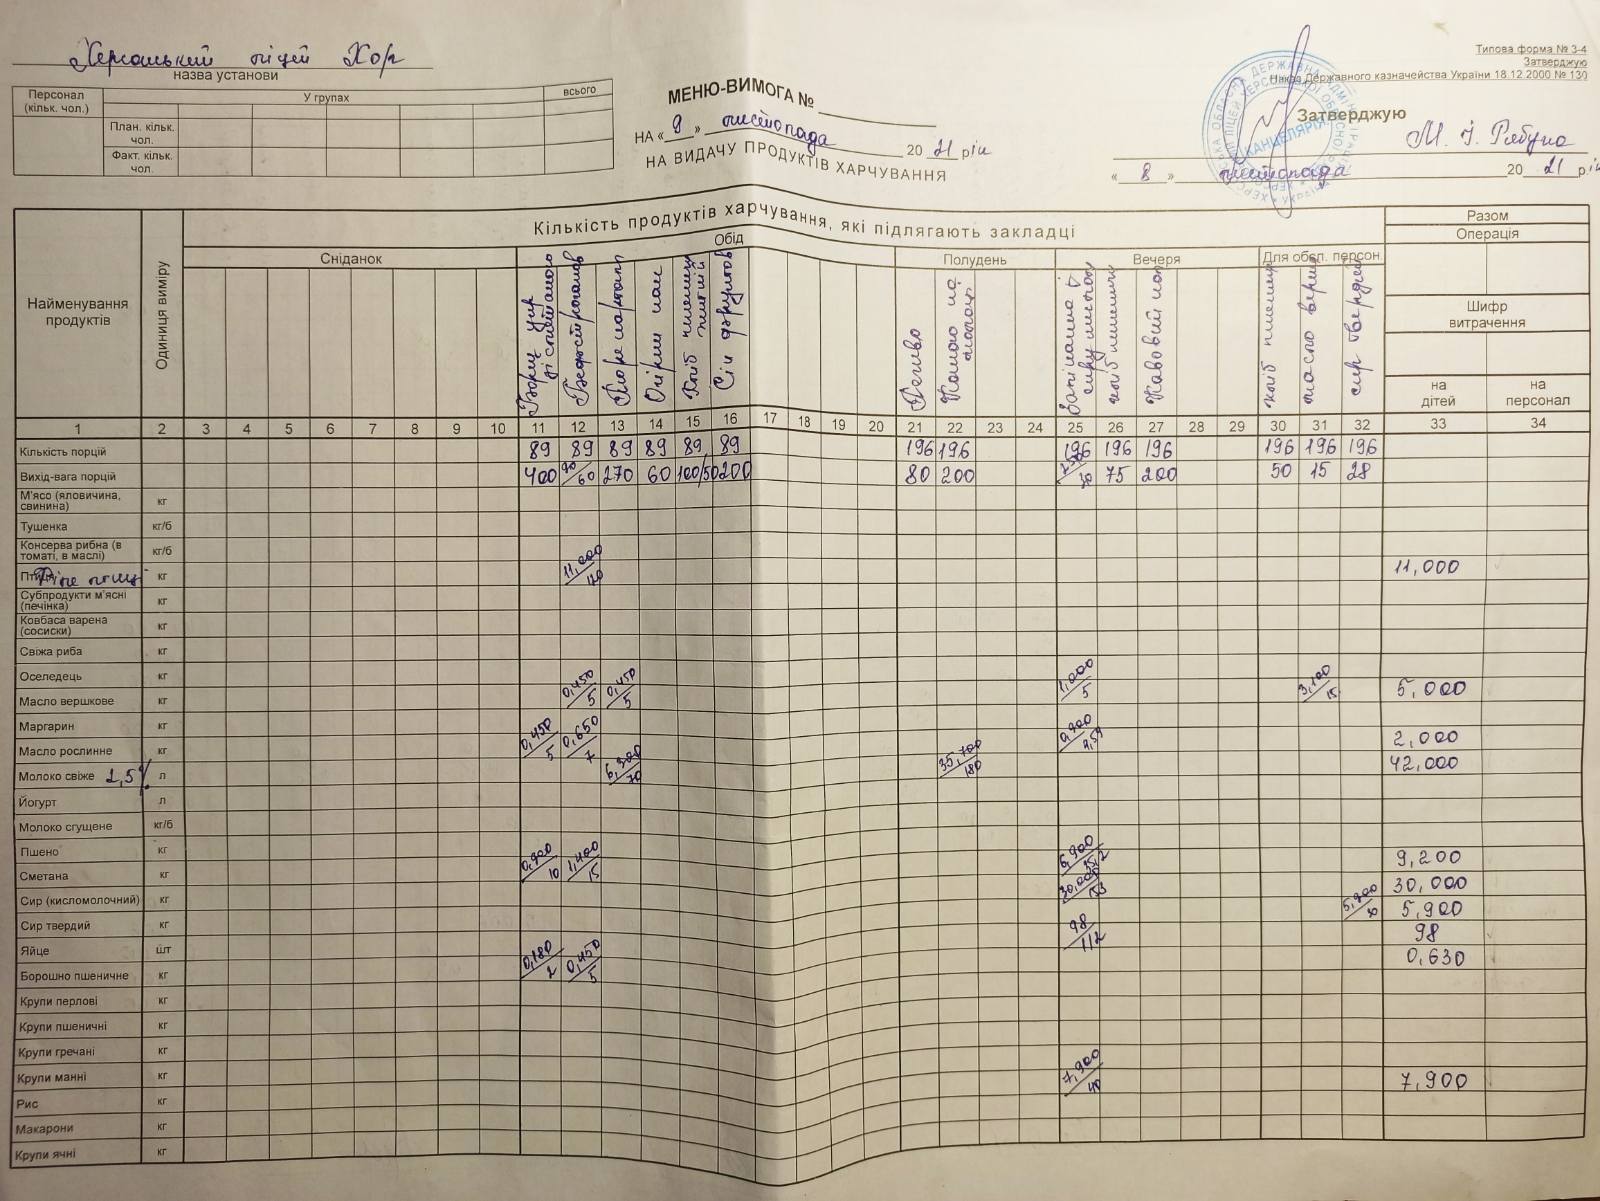 Херсонський ліцей ХОР
назва установи
Типова форма № 3-4
Затверджую
Наказ Державного казначейства України 18.12 2000 № 130
Персонал (кільк. чол.) У групах всього
План. кільк. чол.
Факт. кільк. чол.
МЕНЮ-ВИМОГА №
НА « 9 » листопада 20 21 рік
НА ВИДАЧУ ПРОДУКТІВ ХАРЧУВАННЯ
Затверджую
М. І. Рябуха
« 8 » листопада 20 21 рік
КАНЦЕЛЯРІЯ
Найменування продуктів
Одиниця виміру
Кількість продуктів харчування, які підлягають закладці
Разом
Операція
Шифр витрачення
на дітей
на персонал
Сніданок Обід Полудень Вечеря Для обсл. персон.
Борщ укр зі сметаною
Бефстроганов
Пюре картопл
Огірки сол
Хліб пшенич житній
Сік фруктов
Печиво
Какао на молоці
Запіканка з сиру
хліб пшеничн
Кавовий нап
хліб пшенич
масло верш
сир твердий
1 2 3 4 5 6 7 8 9 10 11 12 13 14 15 16 17 18 19 20 21 22 23 24 25 26 27 28 29 30 31 32 33 34
Кількість порцій 89 89 89 89 89 89 196 196 196 196 196 196 196 196
Вихід-вага порцій 400 90/60 270 60 100/50 200 80 200 250/30 75 200 50 15 28
М'ясо (яловичина, свинина) кг
Тушенка кг/б
Консерва рибна (в томаті, в маслі) кг/б
Птиця Філе птиці кг 11,000/120 11,000
Субпродукти м'ясні (печінка) кг
Ковбаса варена (сосиски) кг
Свіжа риба кг
Оселедець кг
Масло вершкове кг 0,450/5 0,450/5 1,000/5 3,100/15 5,000
Маргарин кг
Масло рослинне кг 0,450/5 0,650/7 0,900/4,59 2,000
Молоко свіже 2,5% л 6,300/70 35,700/180 42,000
Йогурт л
Молоко сгущене кг/б
Пшено кг
Сметана кг 0,900/10 1,400/15 6,900/35,2 9,200
Сир (кисломолочний) кг 30,000/153 30,000
Сир твердий кг 5,900/30 5,900
Яйце шт 98/1/2 98
Борошно пшеничне кг 0,180/2 0,450/5 0,630
Крупи перлові кг
Крупи пшеничні кг
Крупи гречані кг
Крупи манні кг 7,900/40 7,900
Рис кг
Макарони кг
Крупи ячні кг